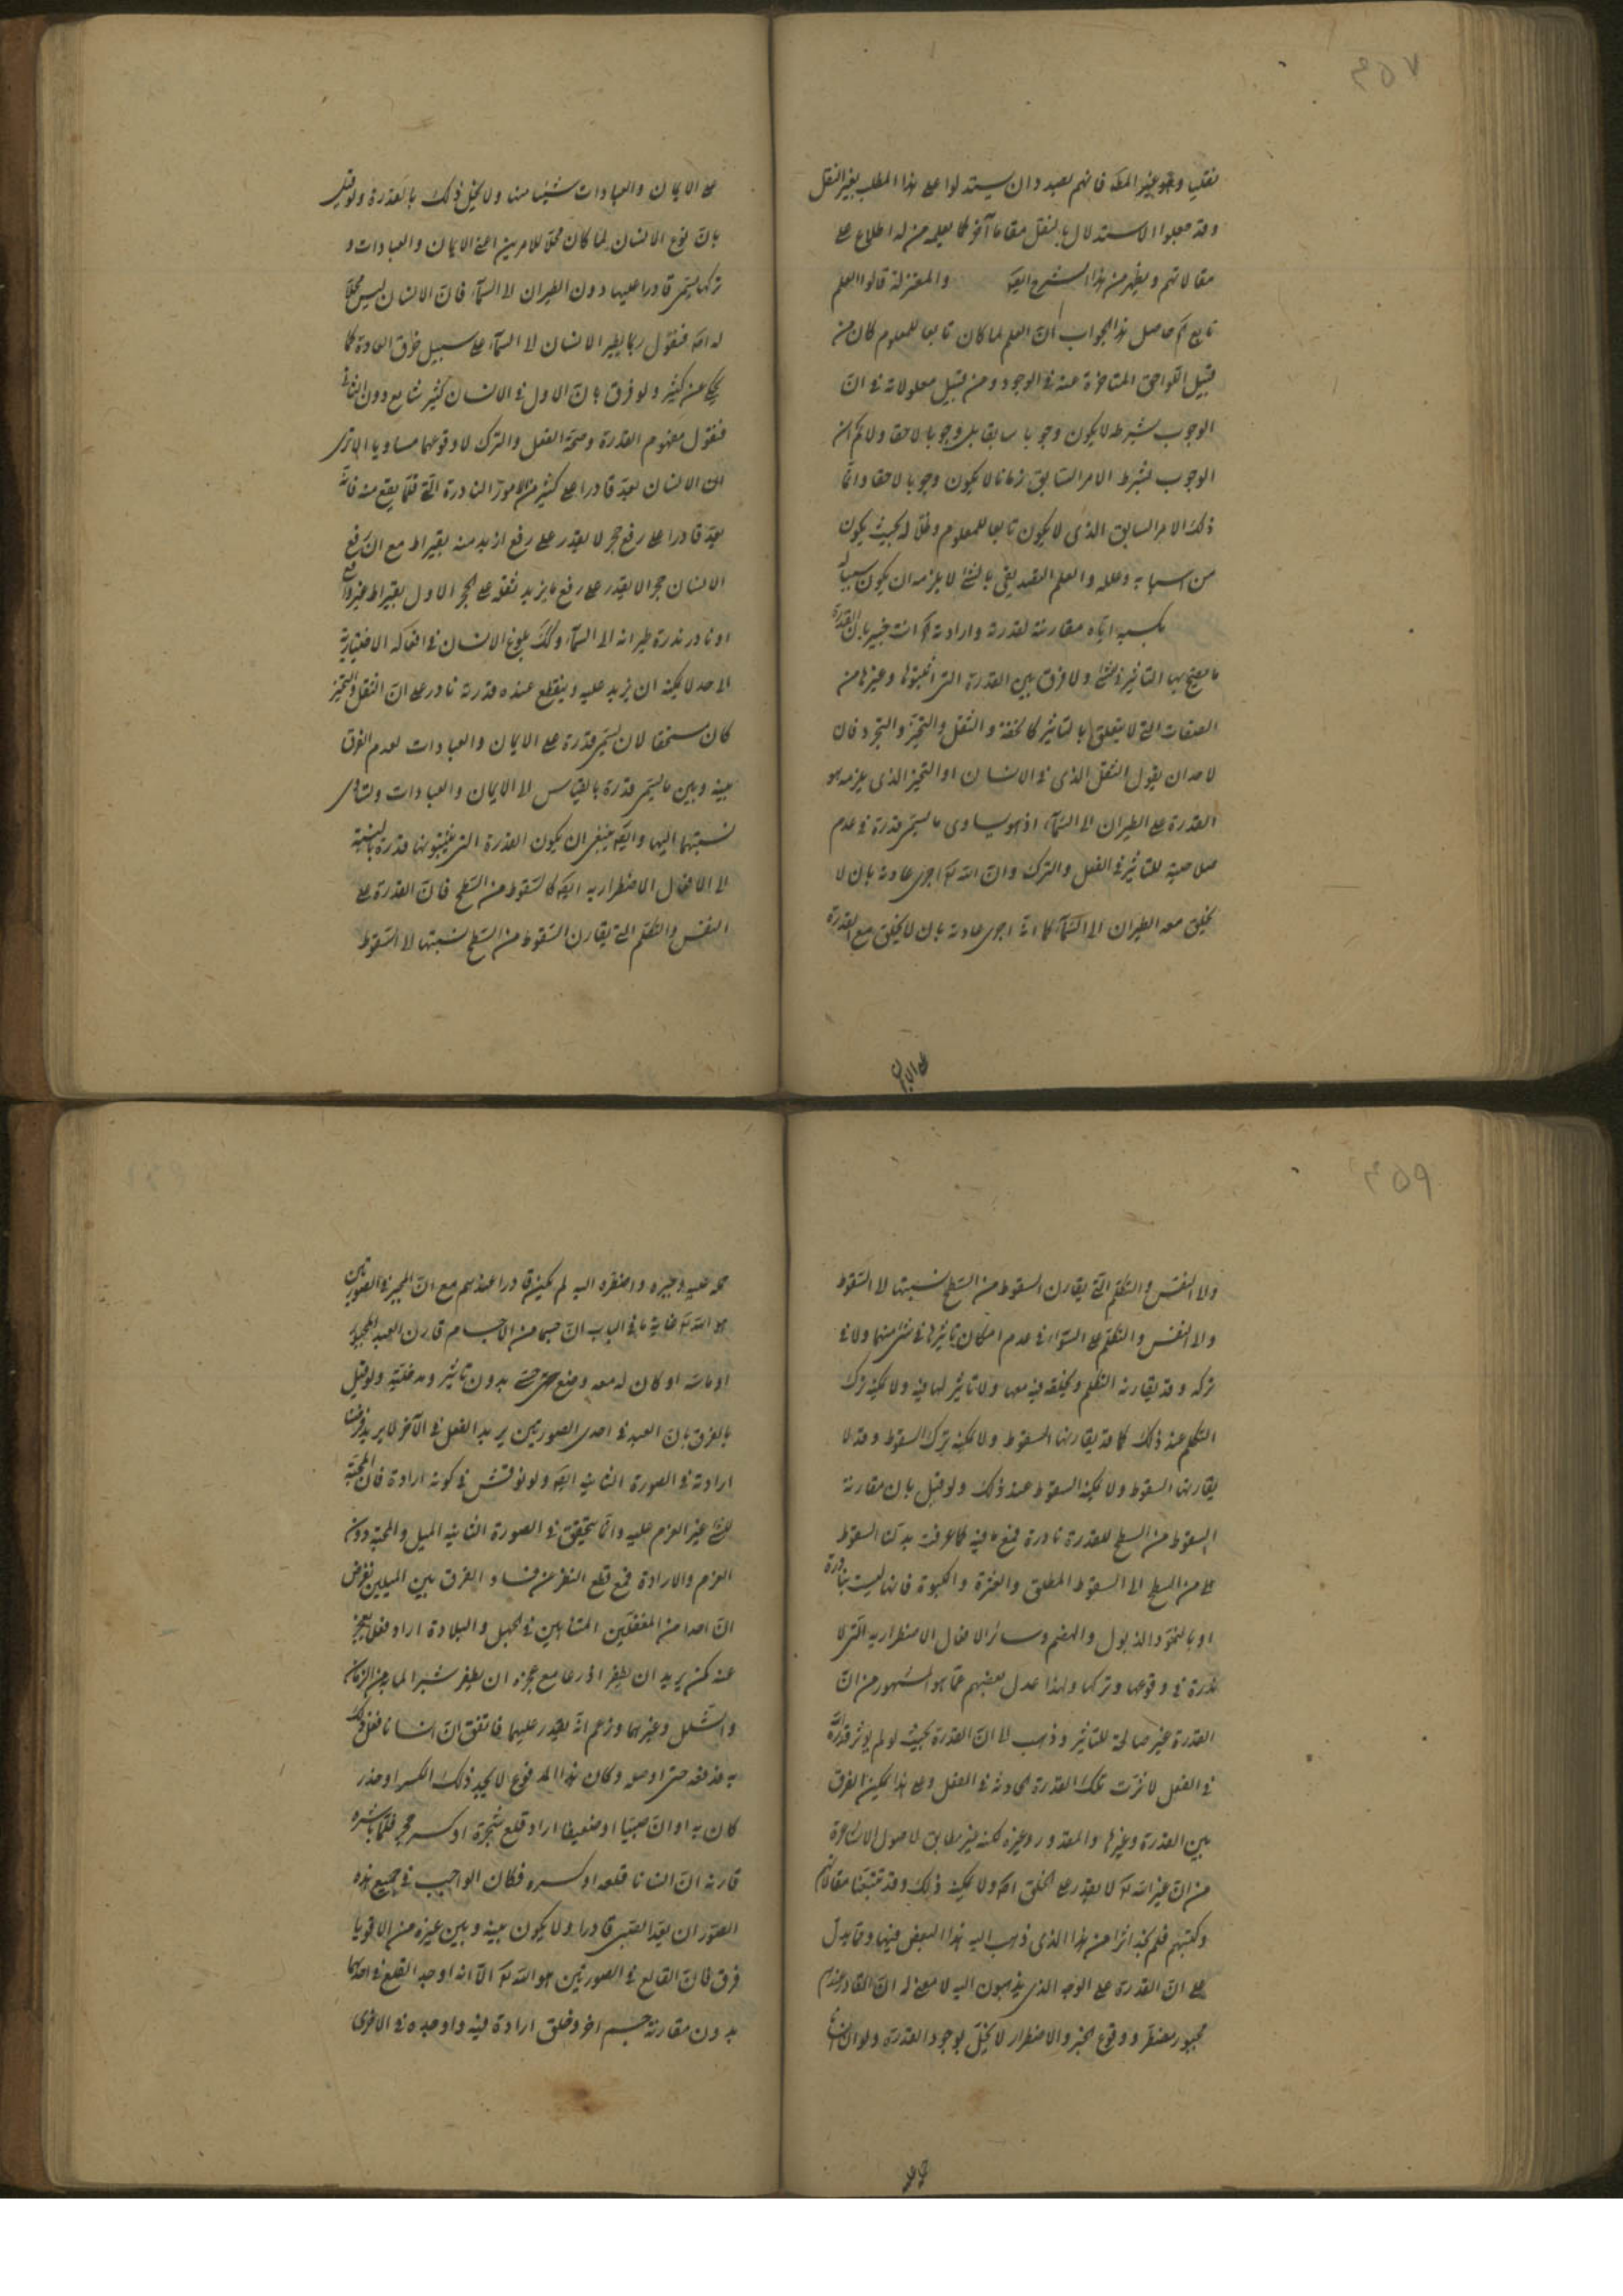 ۴۵۷
نقليا وهو غير المط فانهم بصدد ان يستدلوا على هذا المطلب بغير النقل
وقد جعلوا الاستدلال بالنقل مقاما آخر كما يعلمه من له اطلاع على
مقالاتهم ويظهر من هذا الشرح ايضا والمعتزلة قالوا العلم
تابع آه حاصل هذا الجواب ان العلم لما كان تابعا للمعلوم كان من
قبيل اللواحق المتاخرة عنه في الوجود ومن قبيل معلولاته في ان
الوجوب بشرطه لا يكون وجوبا سابقا بل وجوبا لاحقا ولا نم ان
الوجوب بشرط الامر السابق زمانا لا يكون وجوبا لاحقا وانما
ذلك الامر السابق الذى لا يكون تابعا للمعلوم وظلا له بحيث يكون
من اسبابه وعلله والعلم التصديقى بالشئ لا يلزمه ان يكون سببا له
كسبه اياه مقارنته لقدرته وارادته آه انت خبير بان القدرة
ما يصح بها التاثير في شئ ولا فرق بين القدرة التى اثبتوها وغيرها من
الصفات التى لا يتعلق بالتاثير كالخفة والثقل والتحيز والتجرد فان
لاحد ان يقول الثقل الذى في الانسان او التحيز الذى يلزمه هو
القدرة على الطيران الى السماء اذ هو يساوى ما يسمى قدرة في عدم
صلاحيته للتاثير في الفعل والترك وان الله تع اجرى عادته بان لا
يخلق معه الطيران الى السماء كما انه اجرى عادته بان لا يخلق مع القدرة
على الايمان
على الايمان والعبادات شيئا منها ولا يخل ذلك بالقدرة ولو قيل
بان نوع الانسان لما كان محلا للامرين اعنى الايمان والعبادات و
تركها يسمى قادرا عليها دون الطيران الى السماء فان الانسان ليس محلا
له اصلا فنقول ربما يطير الانسان الى السماء على سبيل خرق العادة كما
يحكى عن كثير ولو فرق بان الاول في الانسان كثير شايع دون الثانى
فنقول مفهوم القدرة وصحة الفعل والترك لا وقوعهما مساويا الا ترى
ان الانسان يعد قادرا على كثير من الامور النادرة التى قلما يقع منه فانه
يعد قادرا على رفع حجر لا يقدر على رفع ازيد منه بقيراط مع ان رفع
الانسان حجرا لا يقدر على رفع ما يزيد ثقله على الحجر الاول بقيراط غير واقع
او نادر ندرة طيرانه الى السماء وكذلك بلوغ الانسان في افعاله الاختيارية
الى حد لا يمكنه ان يزيد عليه وينقطع عنده قدرته نادر على ان الثقل والتحيز
كان مستحقا لان يسمى قدرة على الايمان والعبادات لعدم الفرق
بينه وبين ما يسمى قدرة بالقياس الى الايمان والعبادات وتساوى
نسبتهما اليها وايضا ينبغى ان يكون القدرة التى يثبتونها قدرة بالنسبة
الى الافعال الاضطراريه ايضا كالسقوط من السطح فان القدرة على
التنفس والتكلم التى يقارن السقوط من السطح نسبتها الى السقوط
۴۵۹
والى التنفس والتكلم التى يقارن السقوط من السطح نسبتها الى السقوط
والى التنفس والتكلم على السواء في عدم امكان تاثيرها في شئ منهما ولا في
تركه وقد يقارنه التكلم ويخلقه فيه معها ولا تاثير لها فيه ولا يمكنه ترك
التكلم عند ذلك كما قد يقارنها السقوط ولا يمكنه ترك السقوط وقد لا
يقارنها السقوط ولا يمكنه السقوط عند ذلك ولو قيل بان مقارنة
السقوط من السطح للقدرة نادرة فمع ما فيه كما عرفت بدلنا السقوط
من السطح الى السقوط المطلق والعثرة والكبوة فانها ليست بنادرة
او بالنمو والذبول والهضم وسائر الافعال الاضطراريه التى لا
ندرة في وقوعها وتركها ولهذا عدل بعضهم عما هو المشهور من ان
القدرة غير صالحة للتاثير وذهب الى ان القدرة بحيث لو لم يؤثر قدرة الله
في الفعل لاثرت تلك القدرة الحادثه في الفعل وعلى هذا يمكن الفرق
بين القدرة وغيرها والمقدور وغيره لكنه غير مطابق لاصول الاشاعرة
من ان غير الله تع لا يقدر على الخلق اصلا ولا يمكنه ذلك وقد تتبعنا مقالاتهم
وكتبهم فلم نجد اثرا من هذا الذى ذهب اليه هذا البعض فيها ومما يدل
على ان القدرة على الوجه الذى يذهبون اليه لا معنى له ان القادر عندهم
مجبور مضطر ووقوع الجبر والاضطرار لا يخل بوجود القدرة ولو ان انسانا
حمله عليه
حمله عليه وجبره واضطره اليه لم يكن قادرا عندهم مع ان المجبر في الصورتين
هو الله تع غاية ما في الباب ان جسما من الاجسام قارن العبد المجبور
او ماسه او كان له معه وضع حتى بدون تاثير ومدخلية ولو قيل
بالفرق بان العبد في احدى الصورتين يريد الفعل في الآخر لا يريد فرضنا
ارادته في الصورة الثانيه ايضا ولو نوقش في كونه ارادة فان المحبة
للشئ غير العزم عليه وانما يتحقق في الصورة الثانيه الميل والمحبة دون
العزم والارادة فمع قطع النظر عن فساد الفرق بين الميلين نفرض
ان احدا من المغفلين المتناهين في الجهل والبلادة اراد فعلا يعجز
عنه كمن يريد ان يطفر اذرعا مع عجزه ان يطفر شبرا لما به من الزمان
والشلل وغيرهما وزعم انه يقدر عليهما فاتفق ان انسانا فعل ذلك
به فدفعه حتى اوصله وكان هذا المدفوع لا يجد ذلك لسكر او خدر
كان به او ان صبيا او ضعيفا اراد قلع شجرة او كسر حجر فلما باشره
قارنه ان انسانا قلعه او كسره فكان الواجب في جميع هذه
الصور ان يعد الصبى قادرا ولا يكون بينه وبين غيره من الاقويا
فرق فان القالع في الصورتين هو الله تع الا انه اوجد القلع في احدهما
بدون مقارنة جسم آخر وخلق ارادة فيه واوجده في الاخرى